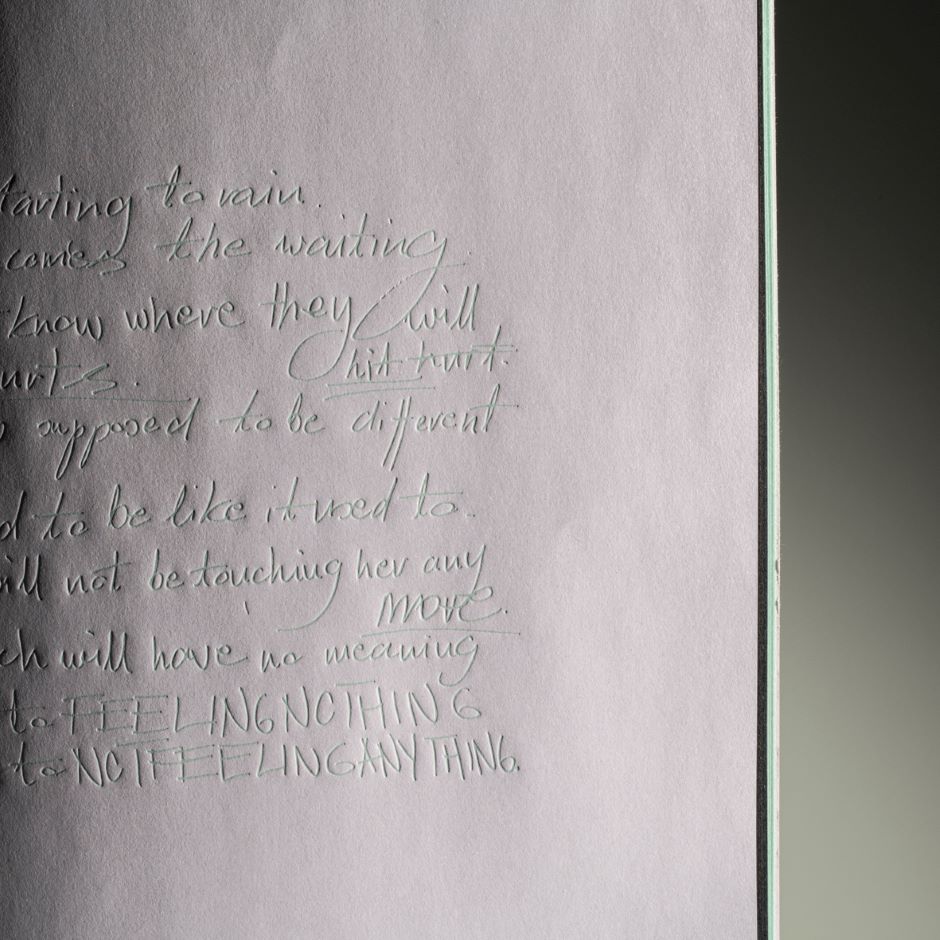 tarting to rain.
comes the waiting
know where they will
urts. hit hurt.
supposed to be different
d to be like it used to.
ill not be touching her any
more.
ch will have no meaning
to FEELINGNOTHING
to NOTFEELINGANYTHING.